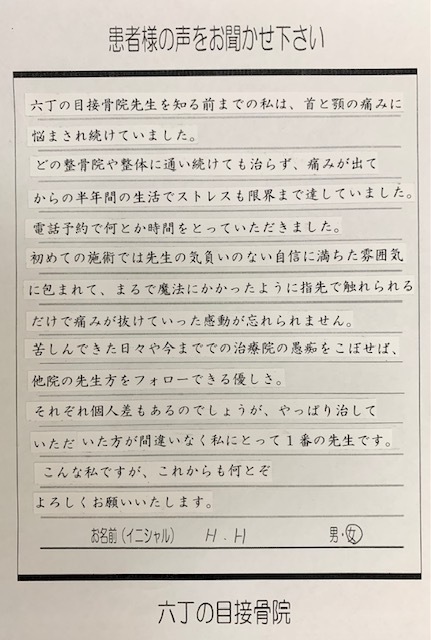 患者様の声をお聞かせ下さい
六丁の目接骨院先生を知る前までの私は、首と顎の痛みに
悩まされ続けていました。
どの整骨院や整体に通い続けても治らず、痛みが出て
からの半年間の生活でストレスも限界まで達していました。
電話予約で何とか時間をとっていただきました。
初めての施術では先生の気負いのない自信に満ちた雰囲気
に包まれて、まるで魔法にかかったように指先で触れられる
だけで痛みが抜けていった感動が忘れられません。
苦しんできた日々や今まででの治療院の愚痴をこぼせば、
他院の先生方をフォローできる優しさ。
それぞれ個人差もあるのでしょうが、やっぱり治して
いただいた方が間違いなく私にとって1番の先生です。
こんな私ですが、これからも何とぞ
よろしくお願いいたします。
お名前(イニシャル) H.H 男・女
六丁の目接骨院